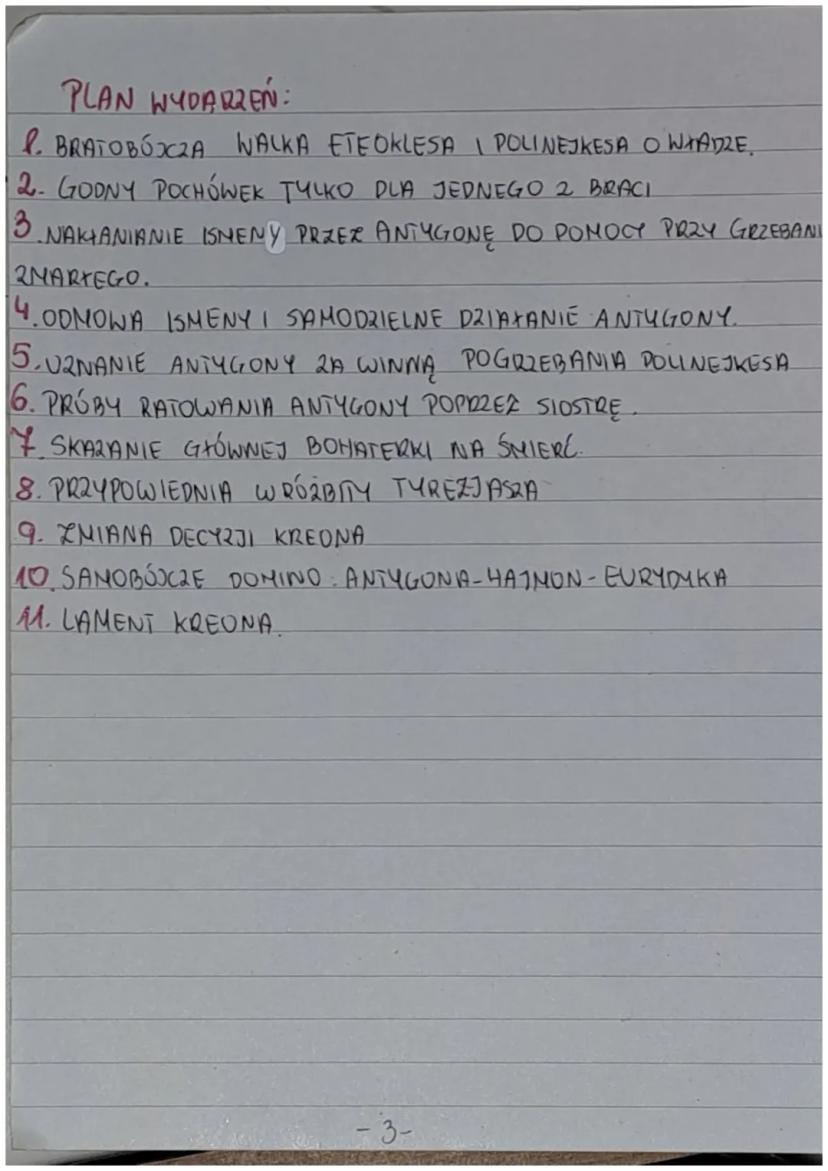 PLAN WYDARZEŃ:
1. BRATOBÓJCZA WALKA ETEOKLESA I POLINEJKESA O WŁADZE.
2. GODNY POCHÓWEK TYLKO DLA JEDNEGO Z BRACI
3. NAKŁANIANIE ISMENY PRZEZ ANTYGONĘ DO POMOCY PRZY GRZEBANI
ZMARŁEGO.
4. ODMOWA ISMENY I SAMODZIELNE DZIAŁANIE ANTYGONY.
5. UZNANIE ANTYGONY ZA WINNĄ POGRZEBANIA POLINEJKESA
6. PRÓBY RATOWANIA ANTYGONY POPRZEZ SIOSTRĘ.
7. SKAZANIE GŁÓWNEJ BOHATERKI NA ŚMIERĆ.
8. PRZYPOWIEDNIA WRÓŻBITY TYREZJASZA
9. ZMIANA DECYZJI KREONA
10. SAMOBÓJCZE DOMINO: ANTYGONA-HAJMON-EURYDYKA
11. LAMENT KREONA.
-3-